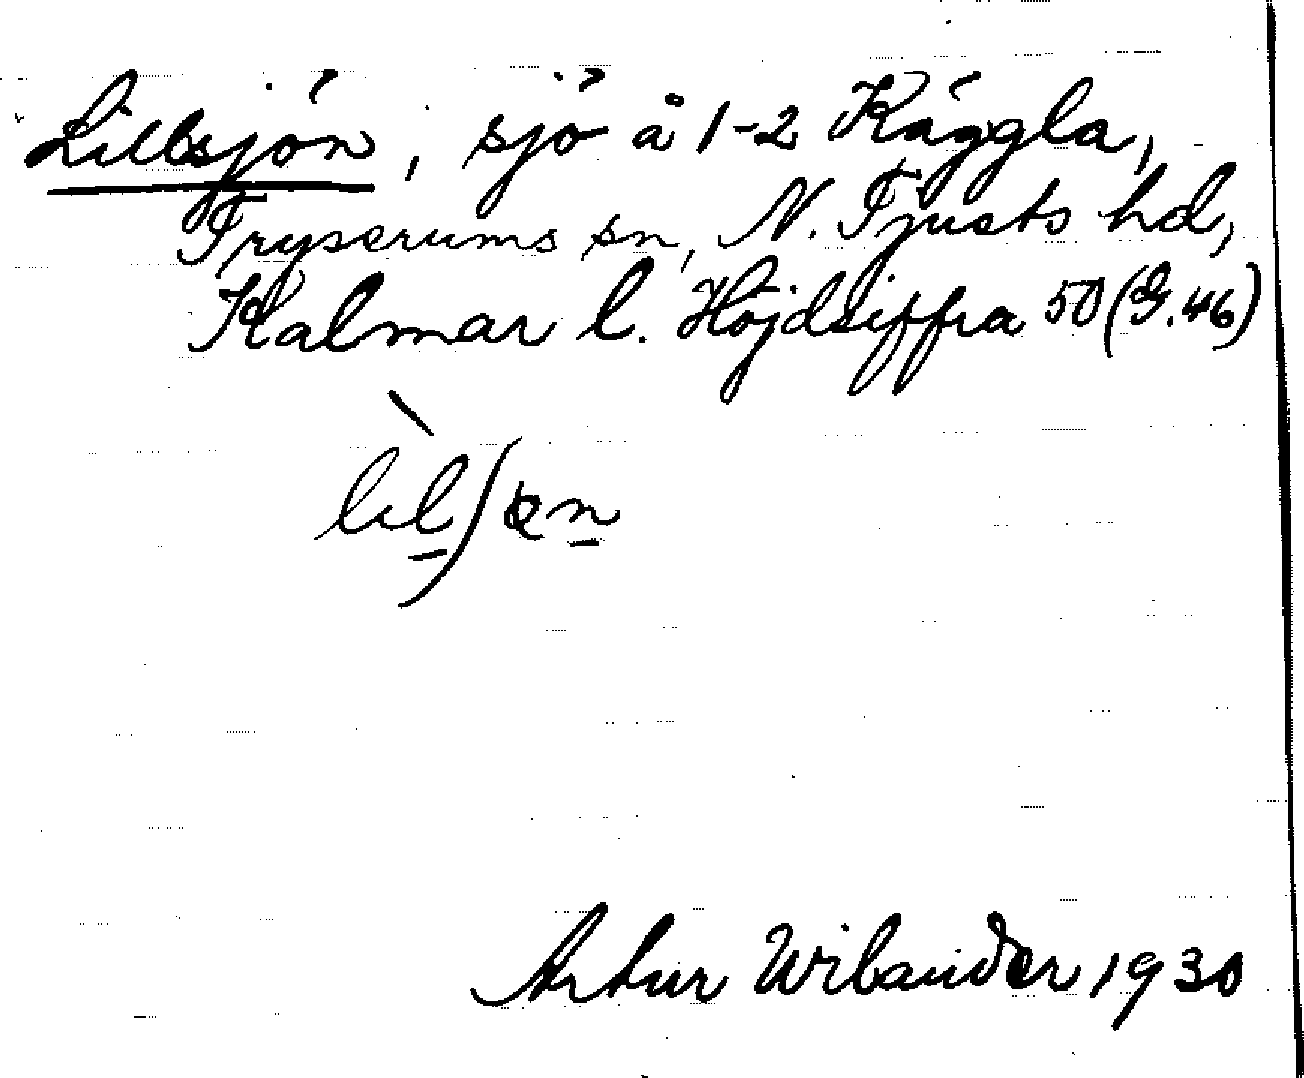 Lillsjön, sjö å 1-2 Käggla,
Tryserums sn, N. Tjusts hd,
Kalmar l. Höjdsiffra 50 (G. 46)
Artur Wilander 1930